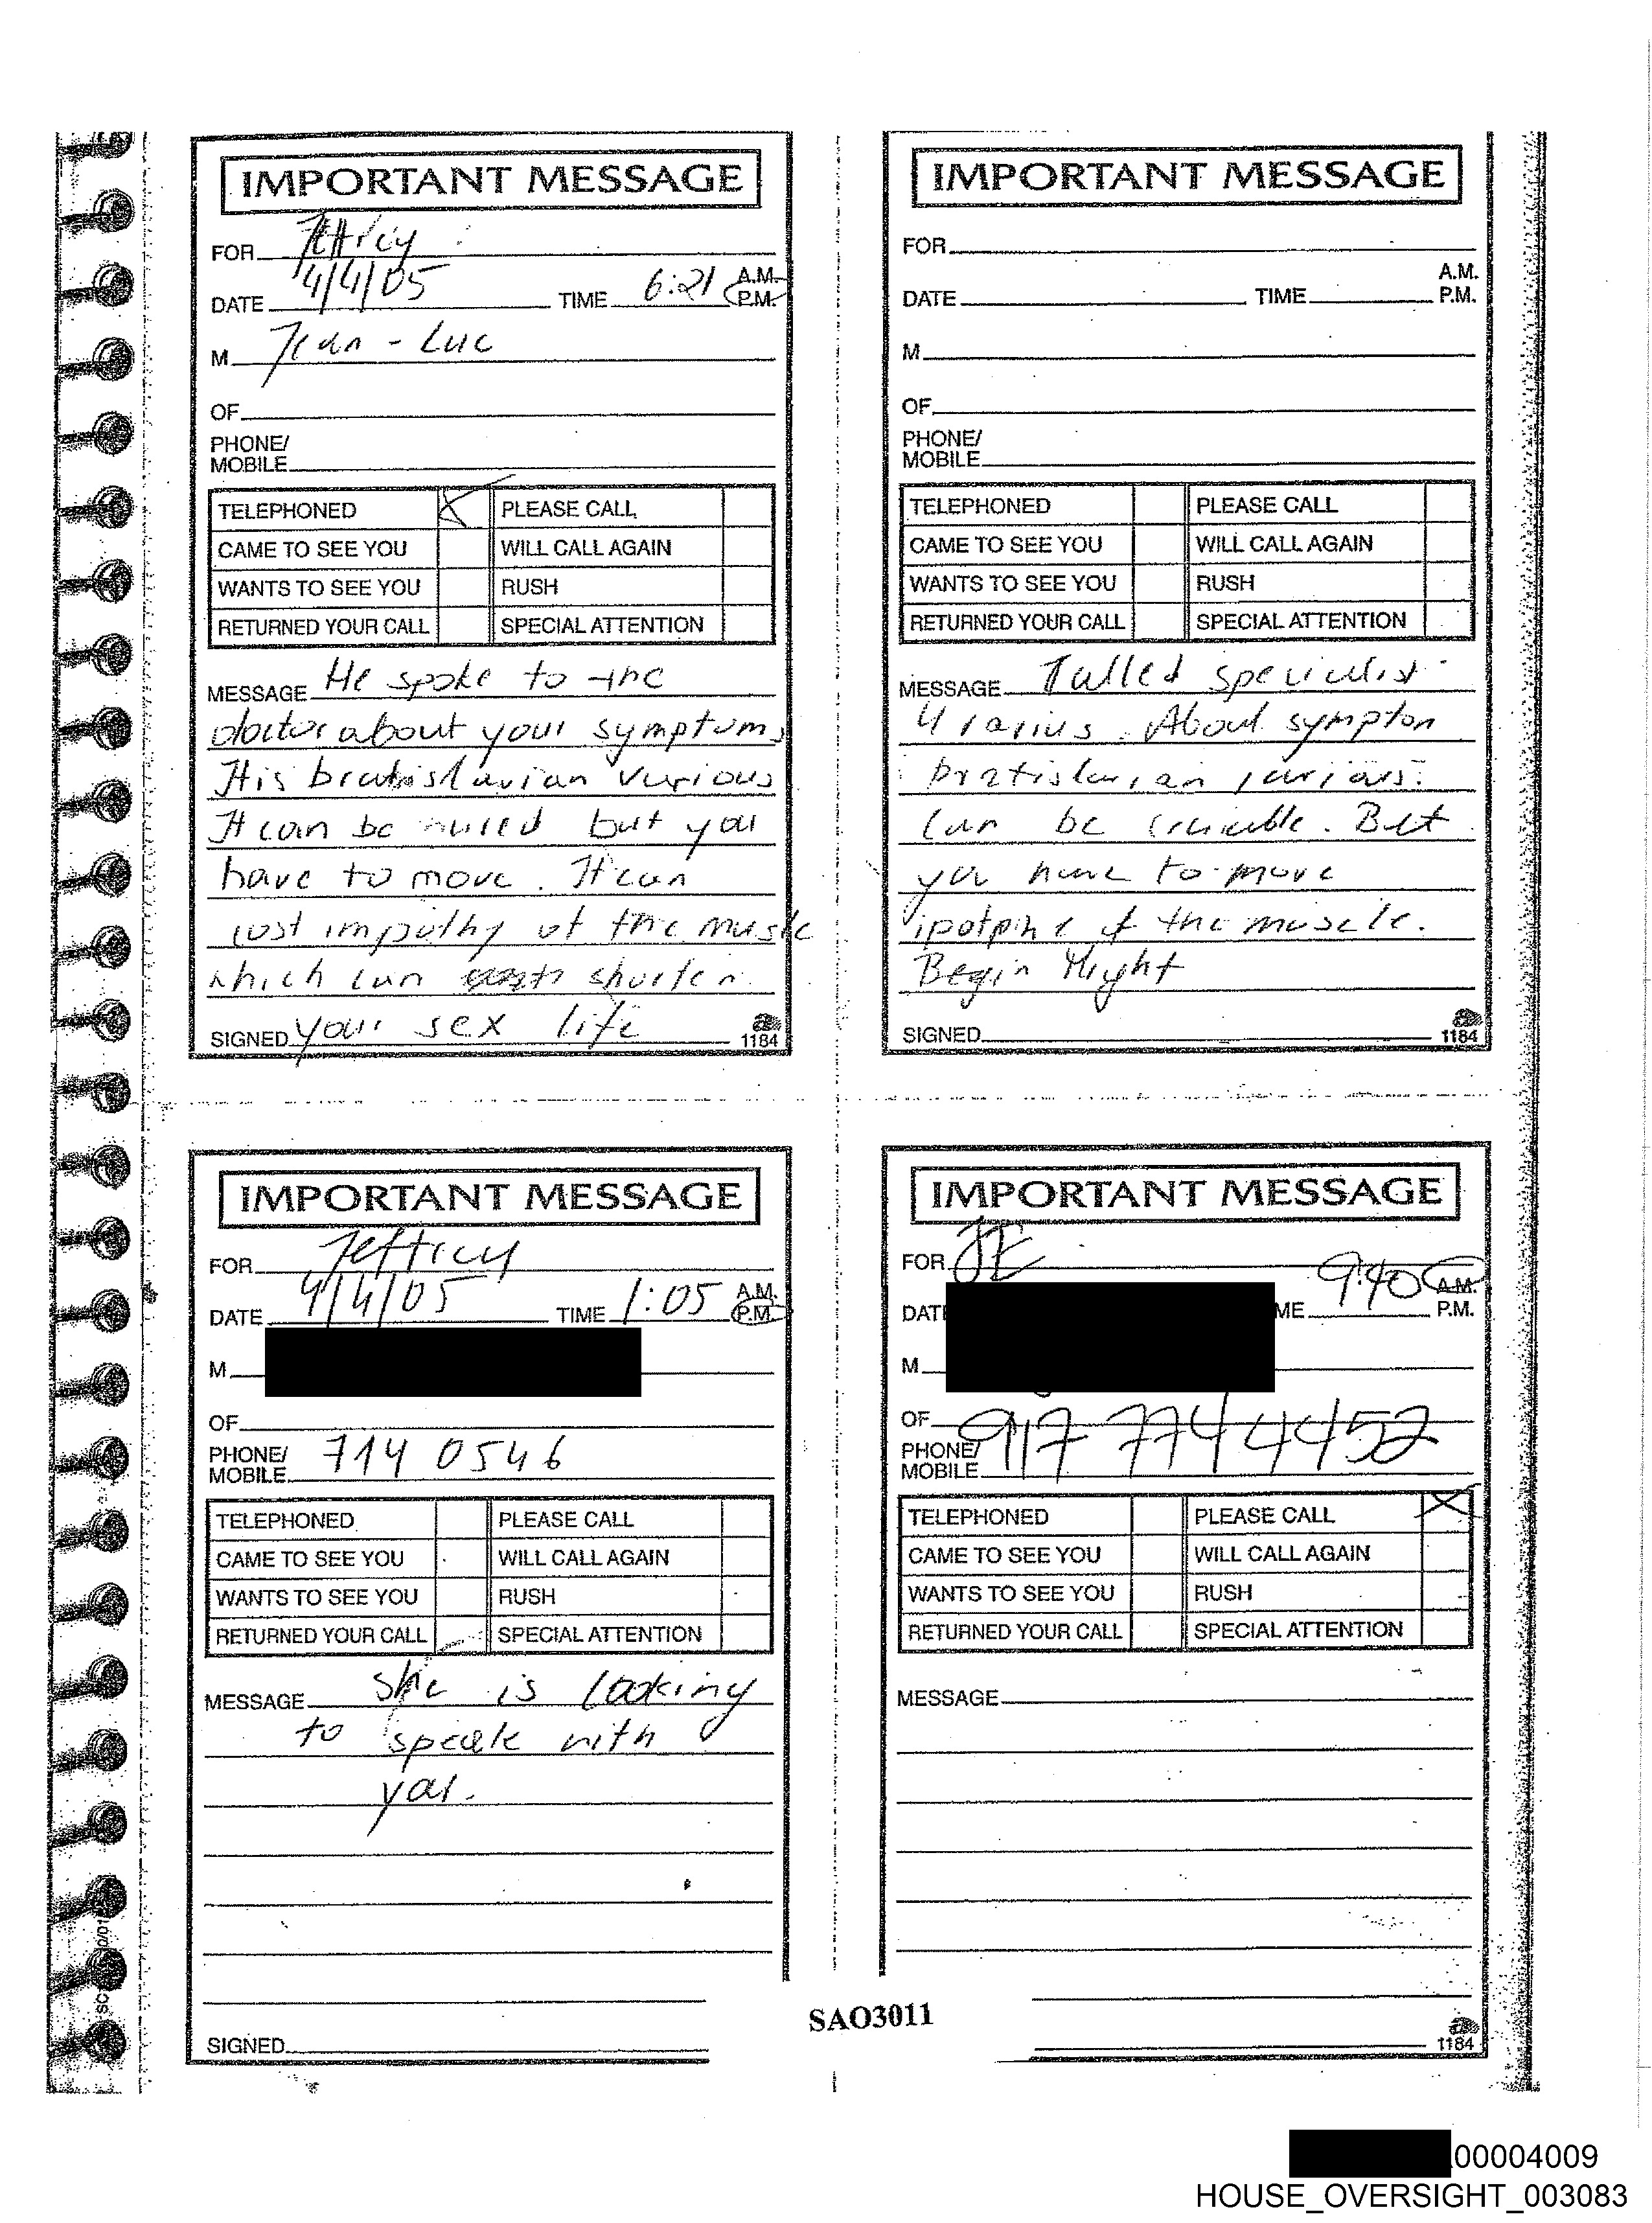 IMPORTANT MESSAGE
FOR Jeffrey
DATE 4/4/05 TIME 6:21 A.M. P.M.
M Jean - Luc
OF
PHONE/
MOBILE
TELEPHONED PLEASE CALL
CAME TO SEE YOU WILL CALL AGAIN
WANTS TO SEE YOU RUSH
RETURNED YOUR CALL SPECIAL ATTENTION
MESSAGE He spoke to the
doctor about your symptums
It is bratislavian
It can be but you
have to move. It can
impothy of the muscle
which can shorten
SIGNED your sex life
1184
IMPORTANT MESSAGE
FOR
DATE TIME A.M. P.M.
M
OF
PHONE/
MOBILE
TELEPHONED PLEASE CALL
CAME TO SEE YOU WILL CALL AGAIN
WANTS TO SEE YOU RUSH
RETURNED YOUR CALL SPECIAL ATTENTION
MESSAGE Talled specialist
About sympton
bratislavian
Can be But
you have to move
of the muscle.
Begin
SIGNED
1184
IMPORTANT MESSAGE
FOR Jeffrey
DATE 4/4/05 TIME 1:05 A.M. P.M.
M
OF
PHONE/
MOBILE 714 0546
TELEPHONED PLEASE CALL
CAME TO SEE YOU WILL CALL AGAIN
WANTS TO SEE YOU RUSH
RETURNED YOUR CALL SPECIAL ATTENTION
MESSAGE She is looking
to speak with
you.
SIGNED
IMPORTANT MESSAGE
FOR JE
DAT ME 9:40 A.M. P.M.
M
OF
PHONE/
MOBILE 917 774 4452
TELEPHONED PLEASE CALL
CAME TO SEE YOU WILL CALL AGAIN
WANTS TO SEE YOU RUSH
RETURNED YOUR CALL SPECIAL ATTENTION
MESSAGE
1184
SAO3011
00004009
HOUSE_OVERSIGHT_003083